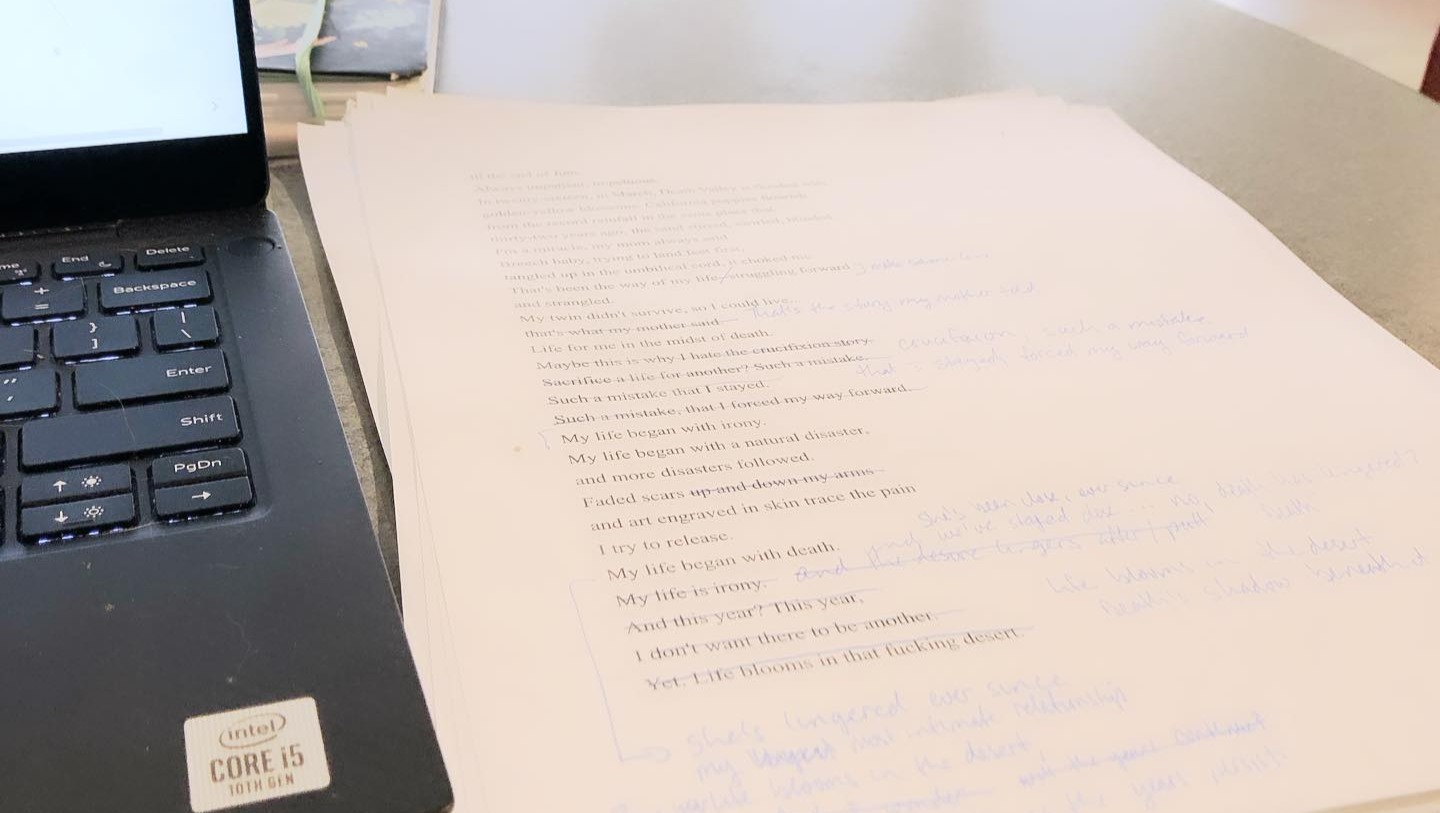 End
Delete
+
=
Backspace
}
]
|
\
"
,
Enter
Shift
PgDn
intel
CORE i5
10TH GEN
till the end of June.
Always impatient, impetuous.
in March, Death Valley is flooded with
golden-yellow blossoms. California poppies flourish
from the record rainfall in the same place that
thirty-two years ago, the sand stirred, swirled, blinded.
I'm a miracle, my mom always said.
Breech baby, trying to land feet first,
tangled up in the umbilical cord, it choked me.
That's been the way of my life, struggling forward make same line
and strangled.
My twin didn't survive, so I could live.
that's what my mother said. That's the story my mother told
Life for me in the midst of death.
Maybe this is why I hate the crucifixion story. crucifixion. such a mistake.
Sacrifice a life for another? Such a mistake. that I stayed, forced my way forward
Such a mistake that I stayed.
Such a mistake, that I forced my way forward.
My life began with irony.
My life began with a natural disaster,
and more disasters followed.
Faded scars up and down my arms
and art engraved in skin trace the pain
I try to release. she's been close, ever since
My life began with death. and we've stayed close... no, death has lingered?
My life is irony. and the desire lingers after
And this year? This year, life blooms in the desert
I don't want there to be another. Death's shadow beneath it
Yet. Life blooms in that fucking desert.
she's lingered ever since
my longest most intimate relationship
blooms in the desert